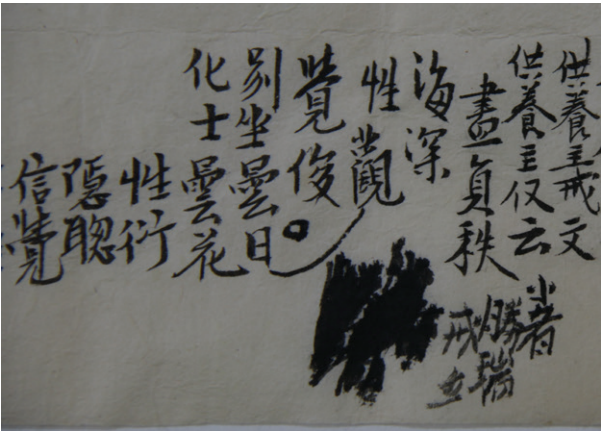 供養主戒文
供養主仅云
畫員秩
海深
性觀
覺俊
別坐曇日
化士曇花
性衍
隱聰
信覺
小者
勝瑞
戒立